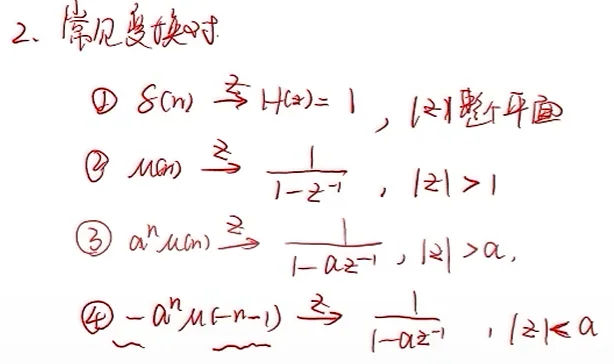 2、常见变换对
① δ(n) —z→ H(z)= 1 , |z| 整个平面
② u(n) —z→ 1/(1-z⁻¹) , |z| > 1
③ aⁿu(n) —z→ 1/(1-az⁻¹) , |z| > a,
④ -aⁿu(-n-1) —z→ 1/(1-az⁻¹) , |z| < a